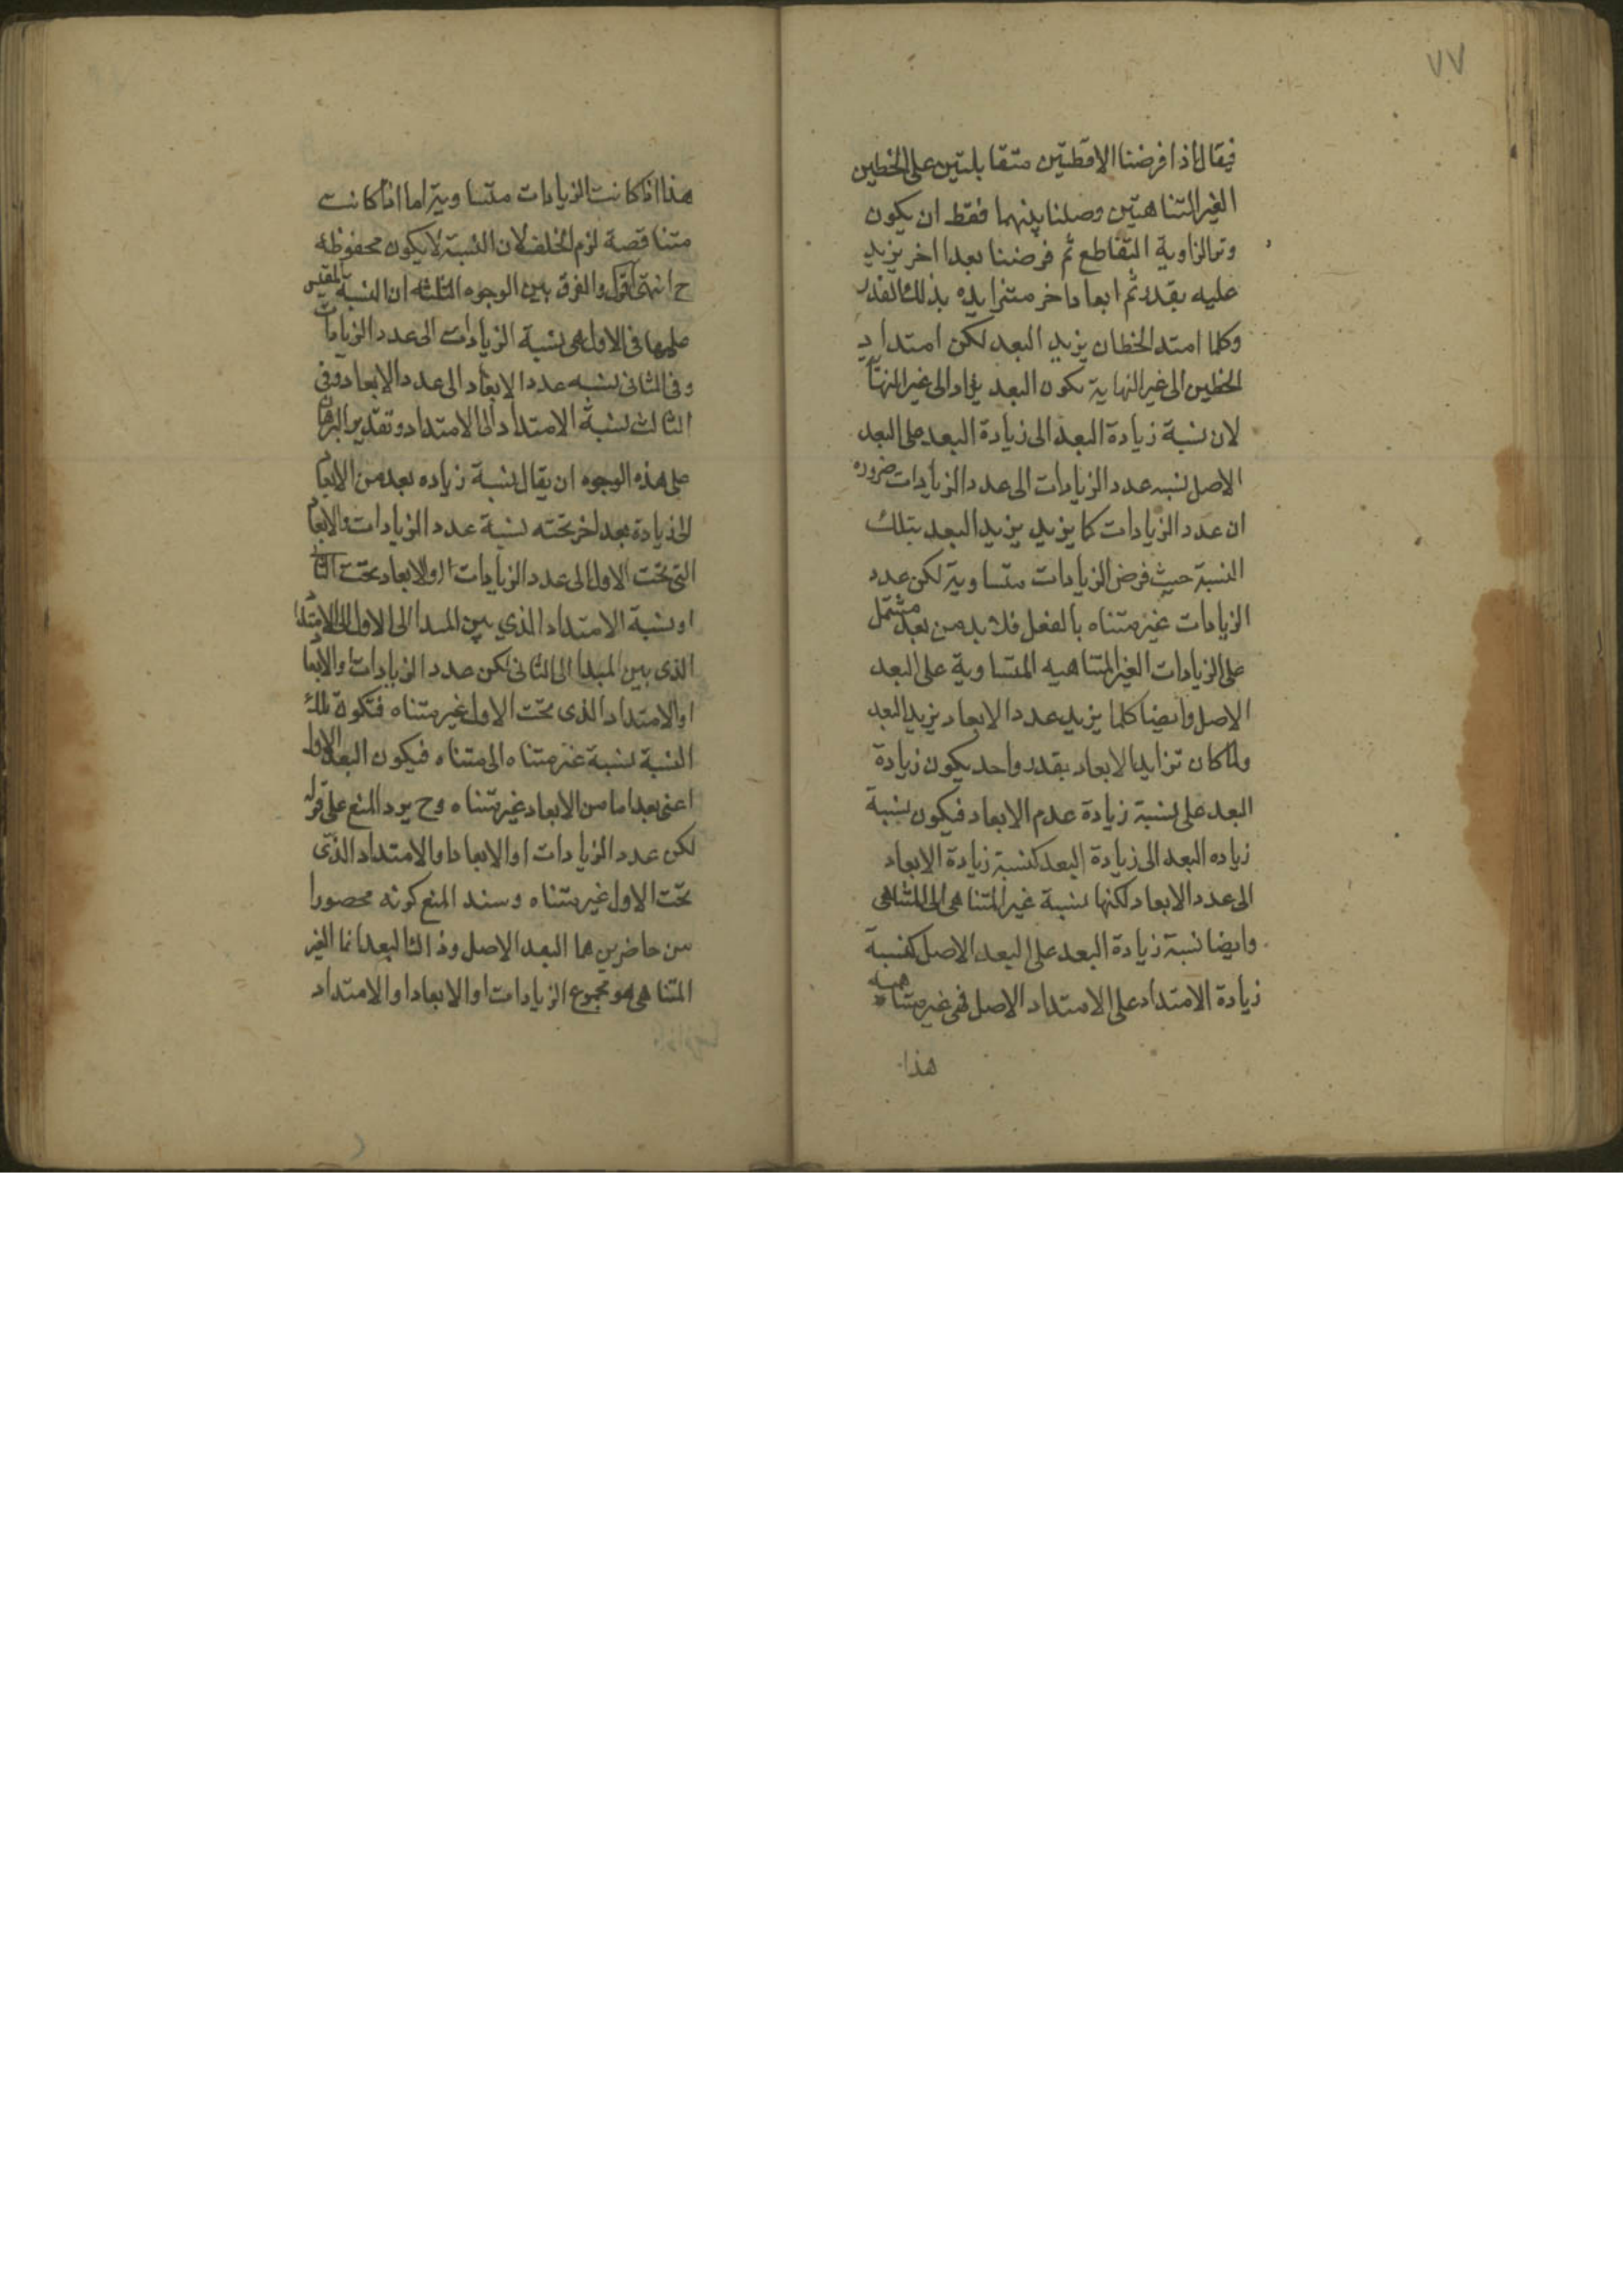 ٧٧
فيقال اذا فرضنا الاقطتين متقابلتين على الخطين
الغير المتناهتين وصلنا بينهما فقط ان يكون
وتر الزاوية التقاطع ثم فرضنا بعدا اخر يزيد
عليه بقدر ثم ابعادا خر متزايده بذلك القدر
وكلما امتد الخطان يزيد البعد لكن امتداد
الخطين الى غير النهاية يكون البعد الى غير النها
لان نسبة زيادة البعد الى زيادة البعد على البعد
الاصل نسبه عدد الزيادات الى عدد الزيادات ضروره
ان عدد الزيادات كما يزيد يزيد البعد بتلك
النسبة حيث فرض الزيادات متساوية لكن عدد
الزيادات غير متناه بالفعل فلا بد من بعد مشتمل
على الزيادات الغير المتناهيه المتساوية على البعد
الاصل وايضا كلما يزيد عدد الابعاد يزيد البعد
ولما كان تزايد الابعاد بقدر واحد يكون زيادة
البعد على نسبة زيادة عدم الابعاد فيكون نسبة
زياده البعد الى زيادة البعد كنسبة زيادة الابعاد
الى عدد الابعاد لكنها نسبة غير المتناهى الى المتناهى
وايضا نسبة زيادة البعد على البعد الاصل كنسبة
زيادة الامتداد على الامتداد الاصل فهى غير متناهية
هذا
هذا اذا كانت الزيادات متساوية اما اذا كانت
متناقصة لزم الخلف لان النسبة لا يكون محفوظة
ح انتهى اقول والفرق بين الوجوه الثلثه ان النسبة المقيس
عليها فى الاول هى نسبة الزيادات الى عدد الزيادات
وفى الثانى نسبه عدد الابعاد الى عدد الابعاد وفى
الثالث نسبة الامتداد الى الامتداد وتقدير البرهان
على هذه الوجوه ان يقال نسبة زياده بعد من الابعاد
الى زيادة بعد اخر تحته نسبة عدد الزيادات والابعاد
التى تحت الاول الى عدد الزيادات او الابعاد تحت الثانى
او نسبة الامتداد الذي بين المبدا الى الاول الى الامتداد
الذى بين المبدا الى الثانى لكن عدد الزيادات او الابعاد
او الامتداد الذى تحت الاول غير متناه فتكون تلك
النسبة نسبة غير متناه الى متناه فيكون البعد الاول
اعنى بعدا ما من الابعاد غير متناه وح يرد المنع على قوله
لكن عدد الزيادات او الابعاد او الامتداد الذى
تحت الاول غير متناه وسند المنع كونه محصورا
بين حاضرين هما البعد الاصل وذالك البعد انما الغير
المتناهى هو مجموع الزيادات او الابعاد او الامتداد